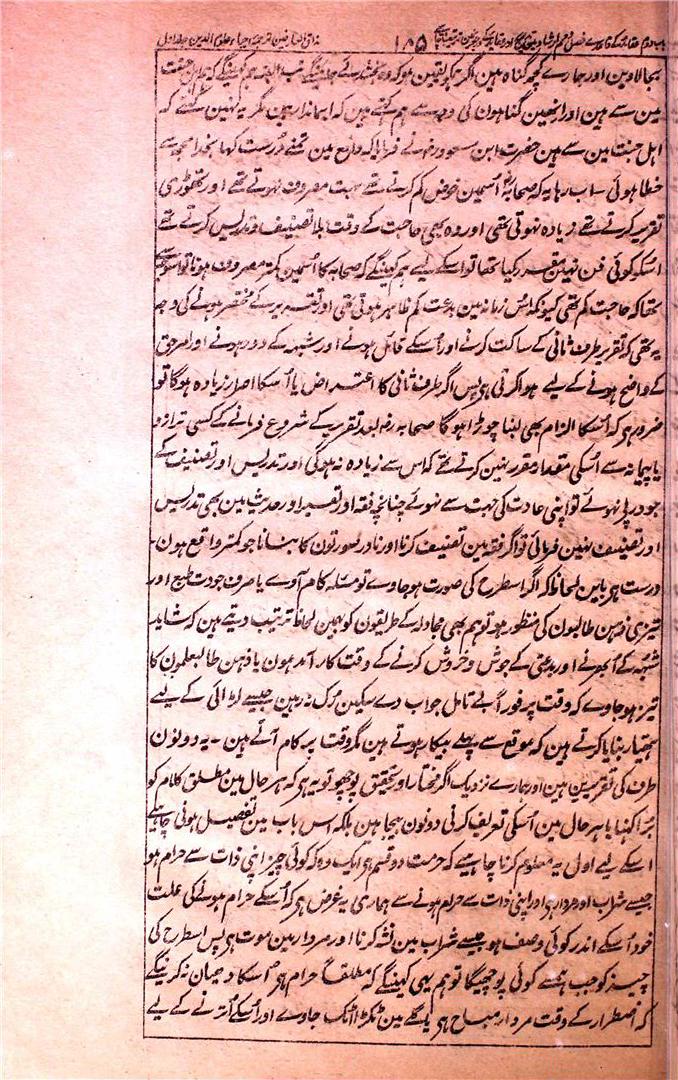 مذاق العارفین ترجمہ احیاء علوم الدین جلد اول ۱۸۵ باب دوم عقائد کے
بجالاوین اور ہمارے کچھ گناہ ہین اگر ہمکو یقین ہو کہ وہ بخشدئے جاوینگے تو البتہ ہم کہینگے کہ ہم اہل جنت
مین سے ہین اور انھین گناہون کی وجہ سے ہم کہتے ہین کہ ایماندار ہین مگر یہ نہین کہتے کہ
اہل جنت مین سے ہین حضرت ابن مسعود نے فرمایا کہ واقع مین تمنے درست کہا بخدا مجھ سے
خطا ہوئی - اب رہا یہ کہ صحابہ اسمین خوض کم کرتے تھے بہت مصروف نہوتے تھے اور تھوڑی
تقریر کرتے تھے زیادہ نہوتی تھی اور وہ بھی حاجت کے وقت بلا تصنیف و تدریس کرتے تھے
اسکو کوئی فن نہین مقرر کیا تھا تو اسکے لیے ہم کہینگے کہ صحابہ کا اسمین کم مصروف ہونا تو اسوجہ سے
تھا کہ حاجت کم تھی کیونکہ اس زمانہ مین بدعت کم ظاہر ہوتی تھی اور تقریر کے مختصر ہونے کی وجہ
یہ تھی کہ تقریر طرف ثانی کے ساکت کرنے اور اسکے قائل ہونے اور شبہہ کے دور ہونے اور امر حق
کے واضح ہونے کے لیے ہوا کرتی ہی پس اگر طرف ثانی کا اعتراض یا اسکا اصرار زیادہ ہوگا تو
ضرور ہی کہ اسکا الزام بھی لنبا چوڑا ہوگا صحابہ رضہ بعد تقریر کے شروع فرمانے کے کسی ترازو
یا پیمانہ سے اسکی مقدار مقرر نہین کرتے تھے کہ اس سے زیادہ نہ ہوگی اور تدریس اور تصنیف کے
جو درپے نہوئے تو اپنی عادت کی جہت سے نہوئے چنانچہ فقہ اور تفسیر اور حدیث مین بھی تدریس
اور تصنیف نہین فرمائی تو اگر فقہ مین تصنیف کرنا اور نادر صورتون کا بنانا جو کمتر واقع ہون -
درست ہی باین لحاظ کہ اگر اسطرح کی صورت ہو جاوے تو مسئلہ کام آوے یا صرف جودت طبع اور
تیزی ذہن طالبون کی منظور ہو تو ہم بھی مجادلہ کے طریقون کو بھی لحاظ ترتیب دیتے ہین کہ شاید
شبہہ کے ابھرنے اور بدعتی کے جوش و خروش کرنے کے وقت کار آمد ہون یا ذہن طالبعلمون کا
تیز ہو جاوے کہ وقت پر فوراً بے تامل جواب دے سکین رک نہ رہین جیسے لڑائی کے لیے
ہتیار بنایا کرتے ہین کہ موقع سے پہلے بیکار ہوتے ہین مگر وقت پر کام آتے ہین - یہ دونون
طرف کی تقریرین ہین اور ہمارے نزدیک اگر مختار اور تحقیق پوچھو تو یہ ہی کہ ہر حال مین مطلق کلام کو
برا کہنا یا ہر حال مین اسکی تعریف کرنی دونون بیجا ہین بلکہ اس باب مین تفصیل ہونی چاہیے
اسکے لیے اول یہ معلوم کرنا چاہیے کہ حرمت دو قسم ہی ایک وہ کہ کوئی چیز اپنی ذات سے حرام ہو
جیسے شراب اور مردار ہی اور اپنی ذات سے حرام ہونے سے ہماری یہ غرض ہی کہ اسکے حرام ہونیکی علت
خود اسکے اندر کوئی وصف ہو جیسے شراب مین نشہ کرنا اور مردار مین موت ہی پس اسطرح کی
چیز کو جب ہمسے کوئی پوچھیگا تو ہم یہی کہینگے کہ مطلقاً حرام ہی اسکا دھیان نہ کرینگے
کہ اضطرار کے وقت مردار مباح ہی یا گلے مین ٹکڑا اٹک جاوے اور اسکے اترنے کے لیے